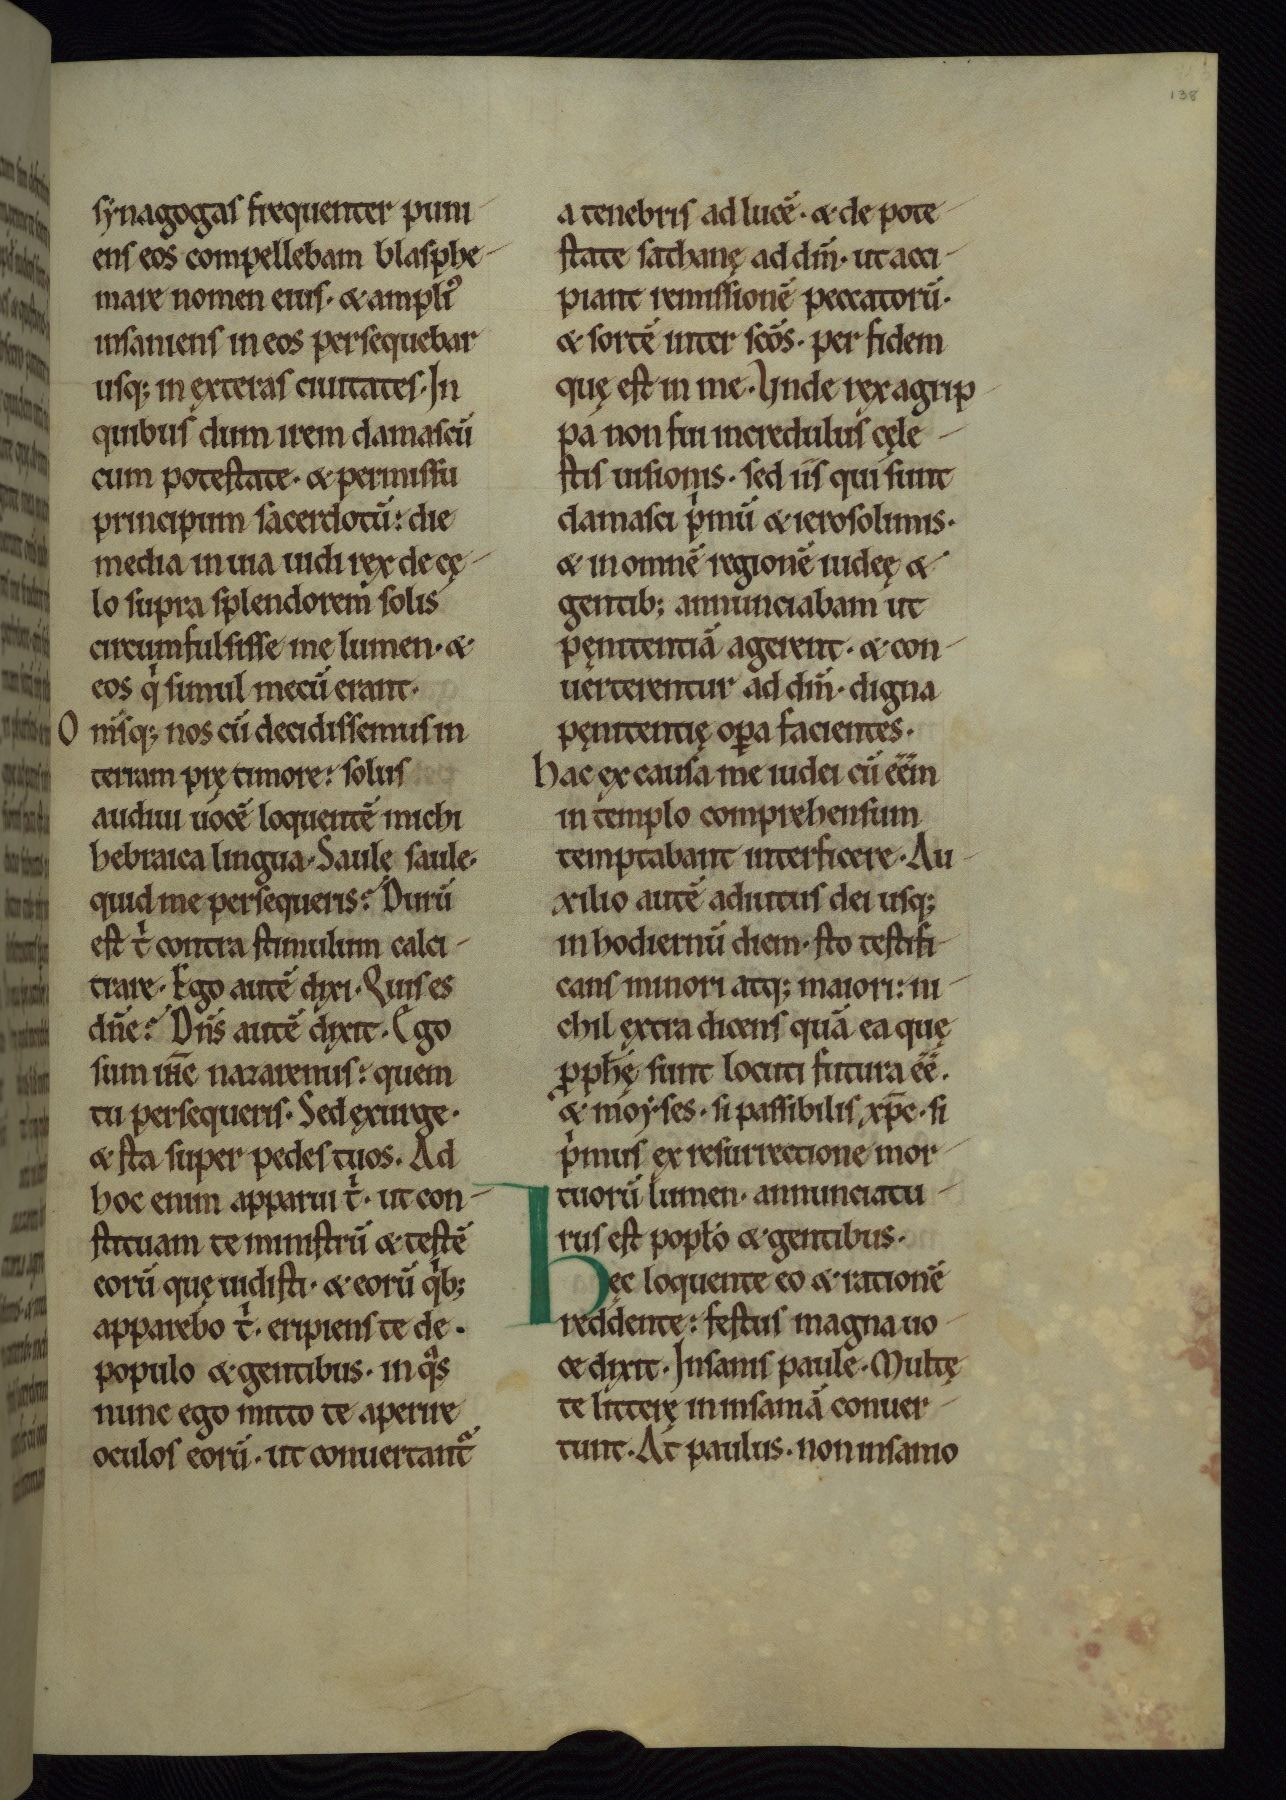 138
synagogas frequenter puni-
ens eos compellebam blasphe-
mare nomen eius· & ampli᷒
insaniens in eos persequebar
usq; in exteras ciuitates· In
quibus dum irem damascū
cum potestate· & permissu
principum sacerdotū: die
media in uia uidi rex de cę-
lo supra splendorem solis
circumfulsisse me lumen· &
eos qͥ simul mecū erant·
Om̄sq; nos cū decidissemus in
terram prę timore: solus
audiui uocē loquentē michi
hebraica lingua· Saule saule·
quid me persequeris? Durū
est tͥ contra stimulum calci-
trare· Ego autē dixi· Quis es
dn̄e? Dn̄s autē dixit· Ego
sum ih̄c nazarenus: quem
tu persequeris· Sed exurge·
& sta super pedes tuos· Ad
hoc enim apparui tͥ· ut con-
stituam te ministrū & testē
eorū quę uidisti· & eorū qͥb;
apparebo tͥ· eripiens te de·
populo & gentibus· in qͣs
nunc ego mitto te aperire
oculos eorū· ut conuertant᷑
a tenebris ad lucē· & de pote-
state sathanę ad dm̄· ut acci-
piant remissionē peccatorū·
& sortē inter sc̄os· per fidem
quę est in me· Unde rex agrip-
pa non fui incredulus cęle-
stis uisionis· sed iis qui sunt
damasci pͥmū & ierosolimis·
& in omnē regionē iudeę &
gentib; annunciabam ut
pęnitentiā agerent· & con-
uerterentur ad dm̄· digna
pęnitentię oꝑa facientes·
hac ex causa me iudei cū eēm
in templo comprehensum
temptabant interficere· Au-
xilio autē adiutus dei usq;
in hodiernū diem· sto testifi-
cans minori atq; maiori: ni-
chil extra dicens quā ea quę
ꝓph̄ę sunt locuti futura eē·
& moyses· si passibilis xp̄c· si
pͥmus ex resurrectione mor-
tuorū lumen· annunciatu-
rus est popl̄o & gentibus·
hęc loquente eo & rationē
reddente: festus magna uo-
ce dixit· Insanis paule· Multę
te litterę in insaniā conuer-
tunt· At paulus· non insanio